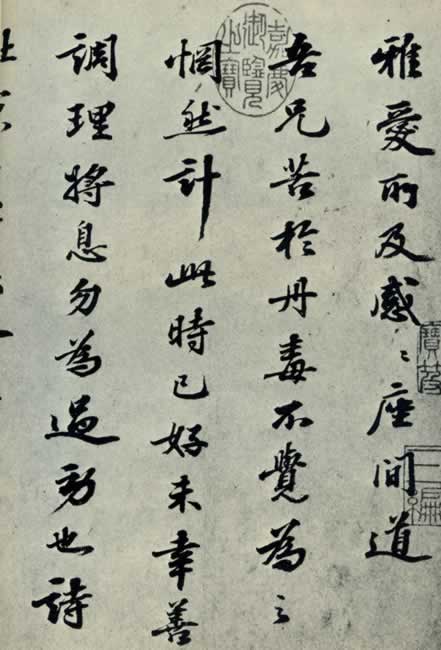 雅愛所及感〻座間道
吾兄苦於丹毒不覺為之
惘然計此時已好未幸善
調理將息勿為過勞也詩
嘉慶御覽之寶
寶笈
三編